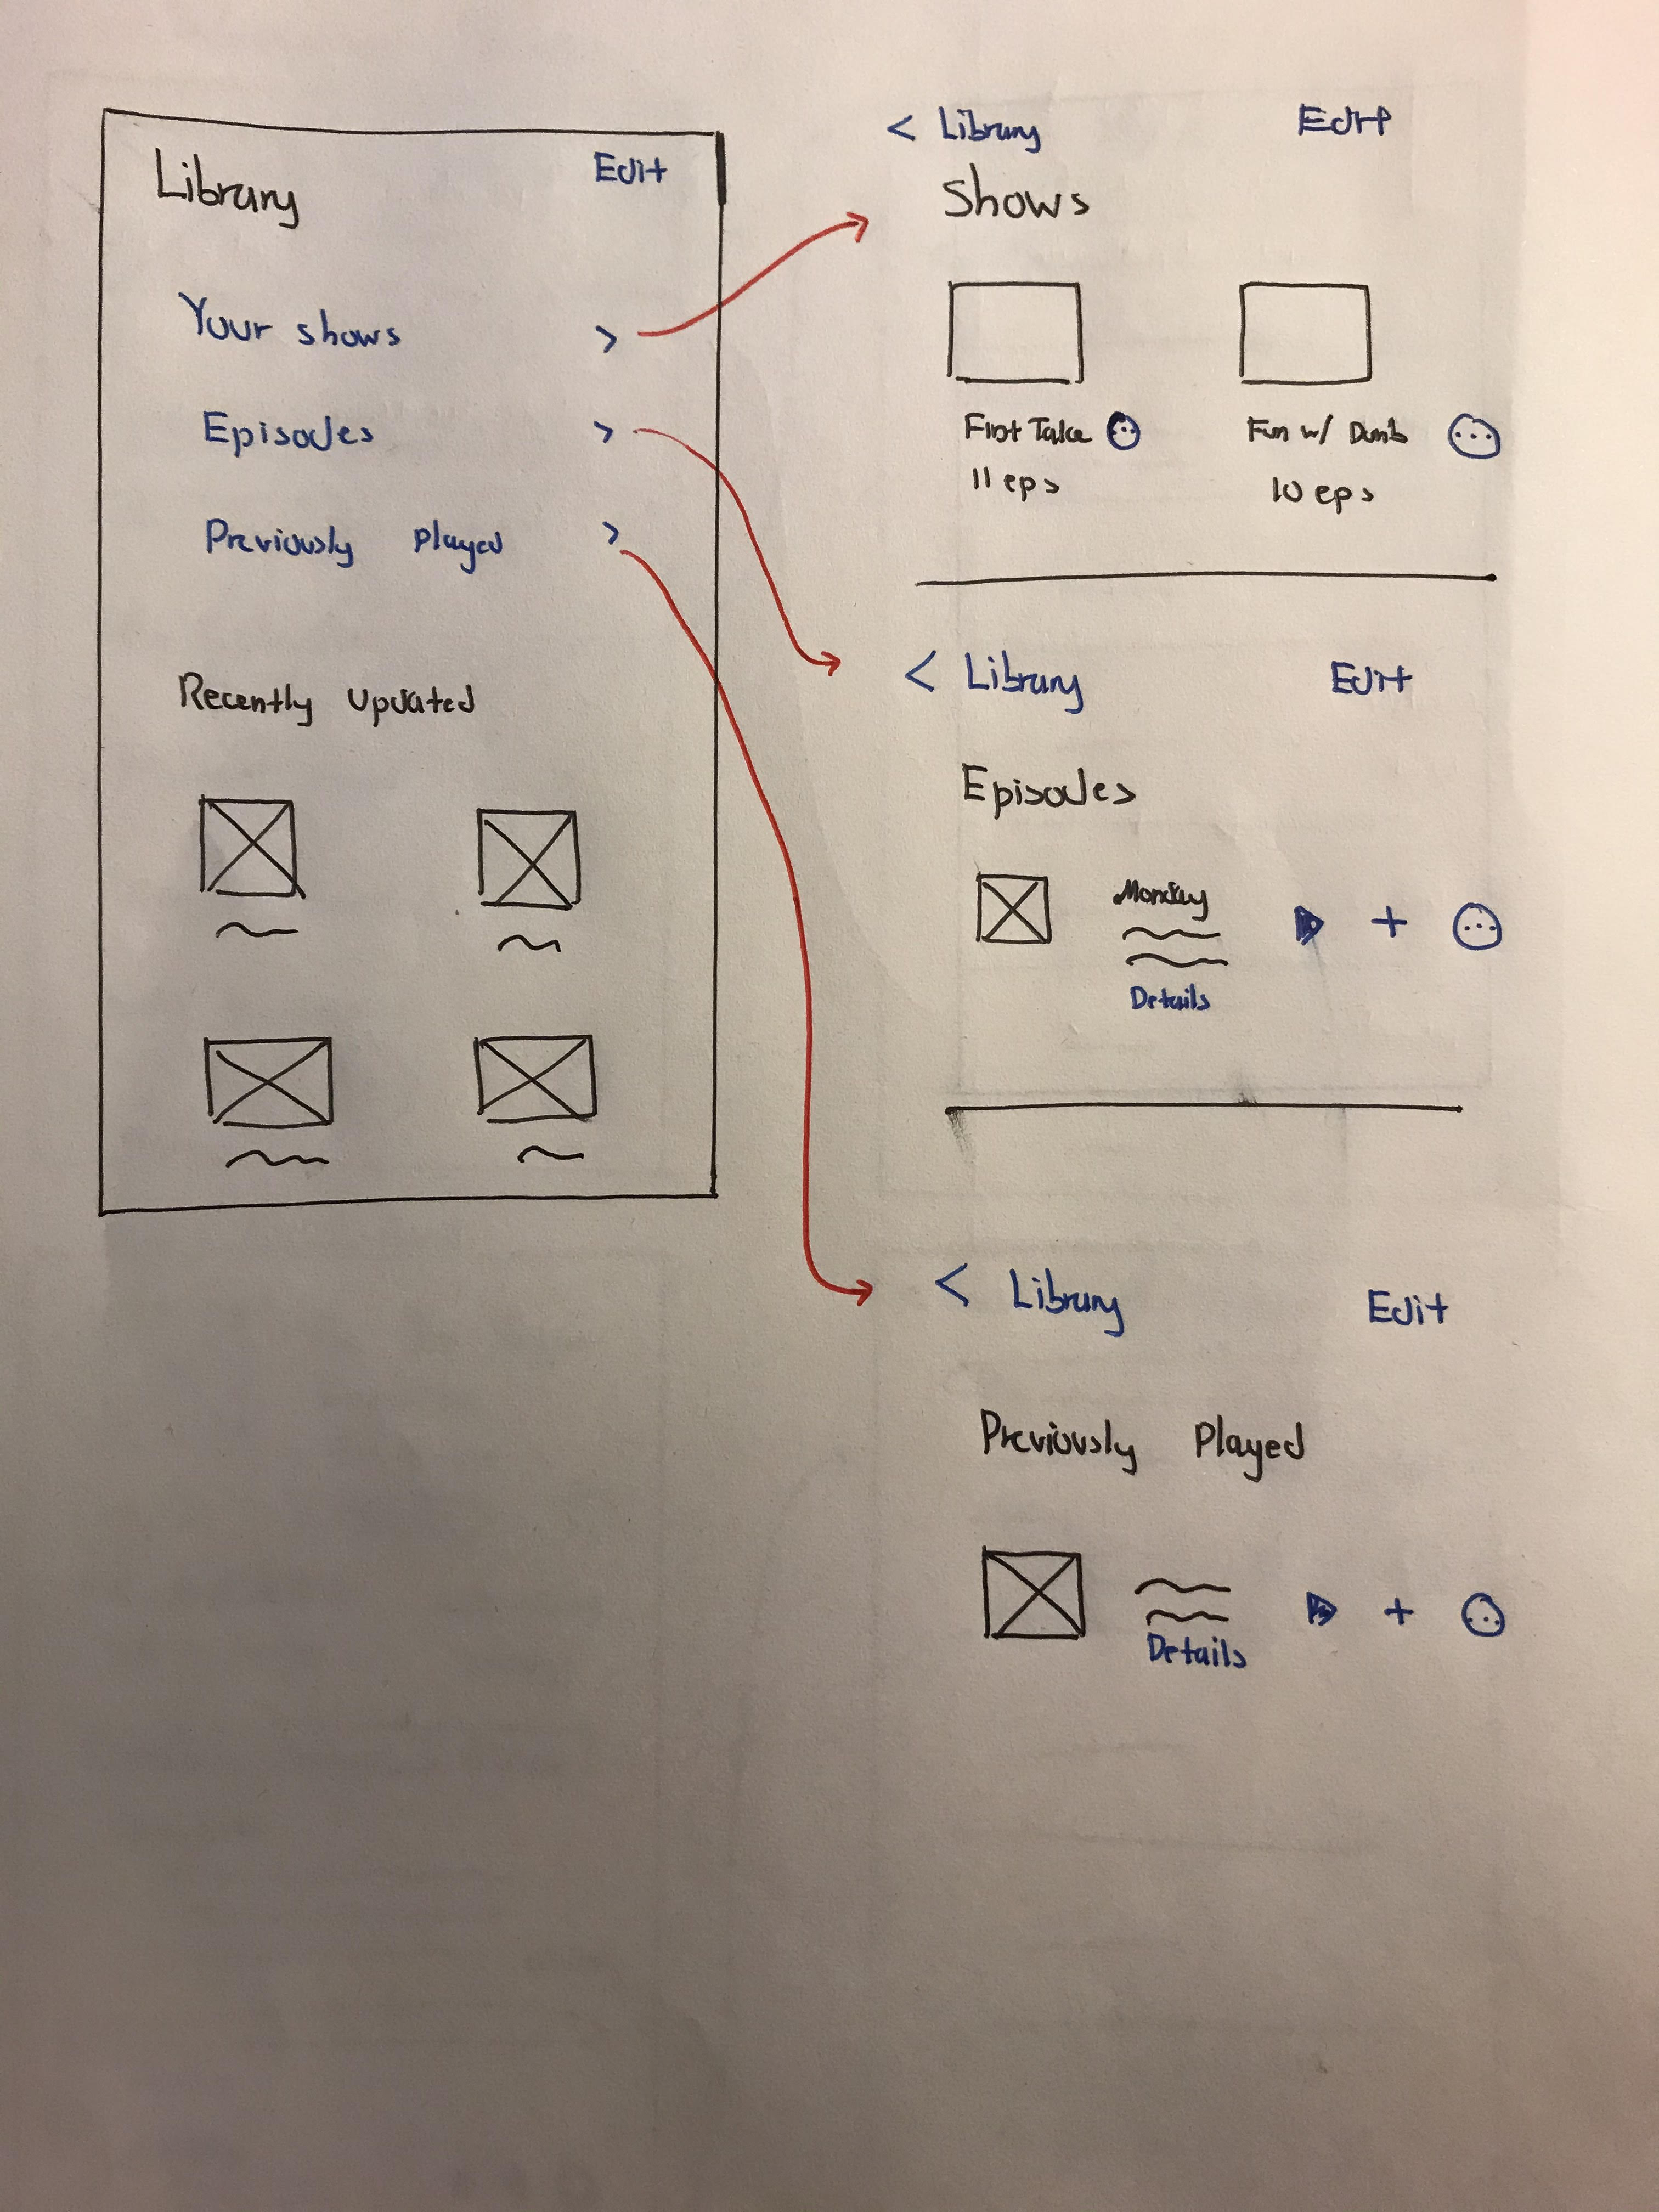 Library Edit
Your shows >
Episodes >
Previously Played >
Recently Updated
< Library Edit
Shows
First Take
11 eps
Fun w/ Dumb
10 eps
< Library Edit
Episodes
Monday
Details
+
< Library Edit
Previously Played
Details
+